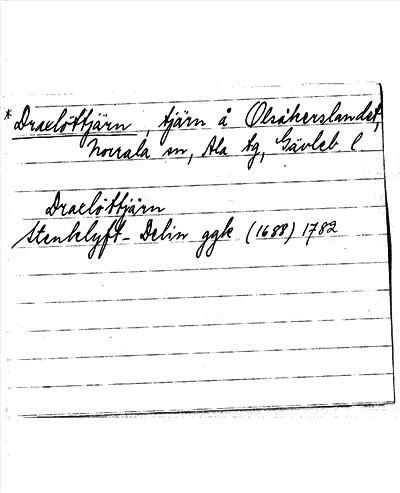 * Draelöttjärn, tjärn å Olsåkerslandet,
Norrala sn, Ala tg, Gävleb. l
Draelöttjärn
Stenklyft-Delin ggk (1688) 1782